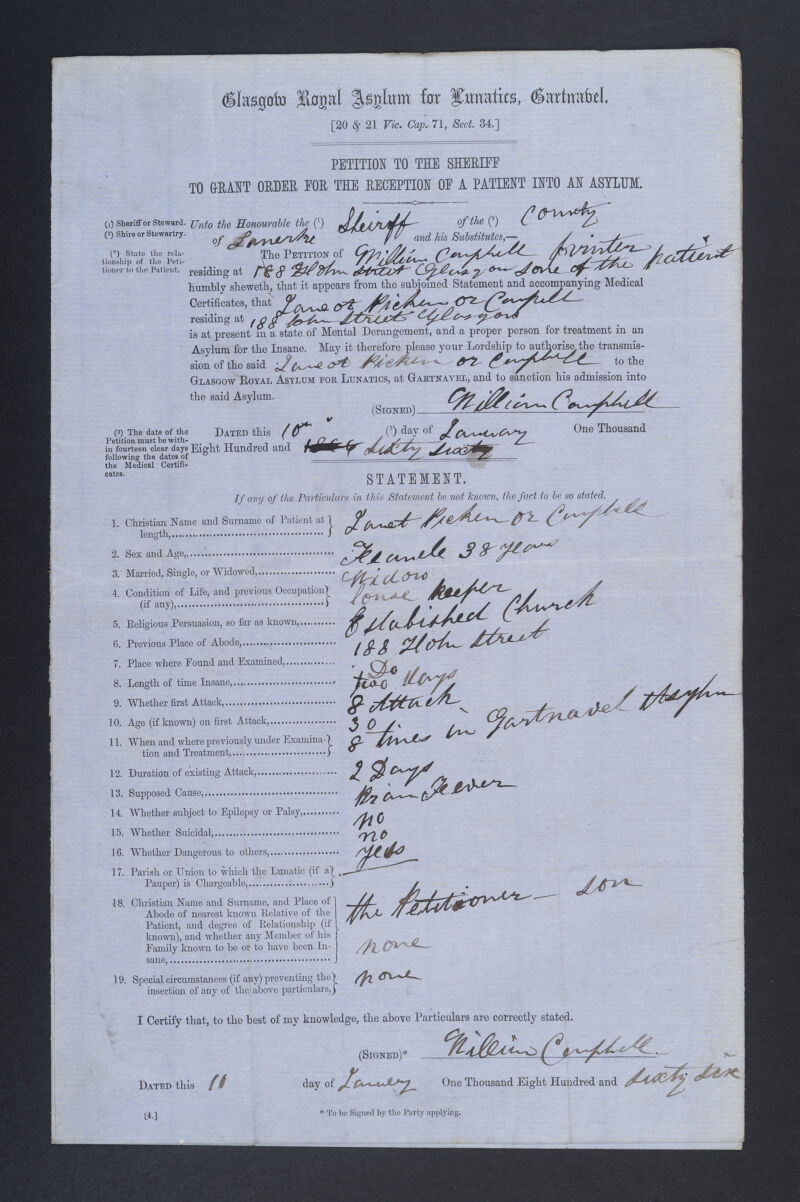 Glasgow Royal Asylum for Lunatics, Gartnavel.
[20 & 21 Vic. Cap. 71, Sect. 34.]
PETITION TO THE SHERIFF
TO GRANT ORDER FOR THE RECEPTION OF A PATIENT INTO AN ASYLUM.
(1) Sheriff or Steward.
(2) Shire or Stewartry.
(*) State the rela-
tionship of the Peti-
tioner to the Patient.
Unto the Honourable the (1) Sheriff of the (2) County
of Lanerke and his Substitutes,—
The PETITION of William Campbell printer
residing at 188 Street Glasgow sone of the patient
humbly sheweth, that it appears from the subjoined Statement and accompanying Medical
Certificates, that Janeot Picken or Campell
residing at 188 Street Glasgow
is at present in a state of Mental Derangement, and a proper person for treatment in an
Asylum for the Insane. May it therefore please your Lordship to authorise the transmis-
sion of the said Janeot Picken or Campbell to the
GLASGOW ROYAL ASYLUM FOR LUNATICS, AT GARTNAVEL, and to sanction his admission into
the said Asylum.
(SIGNED) William Campbell
(3) The date of the
Petition must be with-
in fourteen clear days
following the dates of
the Medical Certifi-
cates.
DATED this 10th (3) day of January One Thousand
Eight Hundred and sixty six
STATEMENT.
If any of the Particulars in this Statement be not known, the fact to be so stated.
1. Christian Name and Surname of Patient at
length, Janet Picken or Campbell
2. Sex and Age, Feamele 38 years
3. Married, Single, or Widowed, Widow
4. Condition of Life, and previous Occupation
(if any), keeper
5. Religious Persuasion, so far as known, Established Church
6. Previous Place of Abode, 188 Street
7. Place where Found and Examined, Do
8. Length of time Insane, two Days
9. Whether first Attack, 8 Attack
10. Age (if known) on first Attack, 30
11. When and where previously under Examina-
tion and Treatment, 8 times in Gartnavel Asylum
12. Duration of existing Attack, 2 Days
13. Supposed Cause, Brian Feever
14. Whether subject to Epilepsy or Palsy, no
15. Whether Suicidal, no
16. Whether Dangerous to others, yes
17. Parish or Union to which the Lunatic (if a
Pauper) is Chargeable,
18. Christian Name and Surname, and Place of
Abode of nearest known Relative of the
Patient, and degree of Relationship (if
known), and whether any Member of his
Family known to be or to have been In-
sane,
the Petitioner – son
none
19. Special circumstances (if any) preventing the
insertion of any of the above particulars, none
I Certify that, to the best of my knowledge, the above Particulars are correctly stated.
(SIGNED)* William Campbell.
DATED this 10 day of January One Thousand Eight Hundred and sixty six
[4.]
* To be Signed by the Party applying.